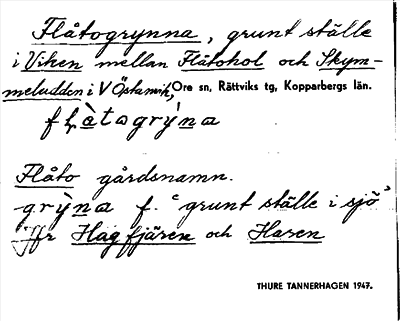 Flåtogrynna, grunt ställe
i Viken mellan Flåtohol och Skym-
meludden i V Östanvik, Ore sn, Rättviks tg, Kopparbergs län.
Flåto gårdsnamn.
grỳna f. "grunt ställe i sjö"
Jfr Hagfjären och Haren
THURE TANNERHAGEN 1947.